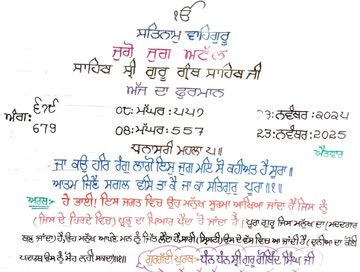 ੴ
ਸਤਿਨਾਮੁ ਵਾਹਿਗੁਰੂ
ਜੁਗੋ ਜੁਗ ਅਟੱਲ
ਸਾਹਿਬ ਸ੍ਰੀ ਗੁਰੂ ਗ੍ਰੰਥ ਸਾਹਿਬ ਜੀ
ਅੱਜ ਦਾ ਫੁਰਮਾਨ
ਅੰਗ: ੬੭੯ 08:ਮੱਘਰ:੫੫੭ 23:ਨਵੰਬਰ:੨੦੨੫
679 08:ਮੱਘਰ:557 23:ਨਵੰਬਰ:2025
ਧਨਾਸਰੀ ਮਹਲਾ ੫॥ ਐਤਵਾਰ
ਜਾ ਕਉ ਹਰਿ ਰੰਗੁ ਲਾਗੋ ਇਸੁ ਜੁਗ ਮਹਿ ਸੋ ਕਹੀਅਤ ਹੈ ਸੂਰਾ॥
ਆਤਮ ਜਿਣੈ ਸਗਲ ਵਸਿ ਤਾ ਕੈ ਜਾ ਕਾ ਸਤਿਗੁਰੁ ਪੂਰਾ॥੧॥
ਅਰਥ:- ਹੇ ਭਾਈ! ਇਸ ਜਗਤ ਵਿਚ ਉਹ ਮਨੁੱਖ ਸੂਰਮਾ ਆਖਿਆ ਜਾਂਦਾ ਹੈ ਜਿਸ ਨੂੰ
(ਜਿਸ ਦੇ ਹਿਰਦੇ ਵਿਚ) ਪ੍ਰਭੂ ਦਾ ਪਿਆਰ ਪੈਦਾ ਹੋ ਜਾਂਦਾ ਹੈ। ਪੂਰਾ ਗੁਰੂ ਜਿਸ ਮਨੁੱਖ ਦਾ (ਮਦਦਗਾਰ
ਬਣ ਜਾਂਦਾ) ਹੈ, ਉਹ ਮਨੁੱਖ ਆਪਣੇ ਮਨ ਨੂੰ ਜਿੱਤ ਲੈਂਦਾ ਹੈ, ਸਾਰੀ (ਸ੍ਰਿਸ਼ਟੀ) ਉਸ ਦੇ ਵੱਸ ਵਿਚ ਆ ਜਾਂਦੀ ਹੈ (ਦੁਨੀਆ ਦਾ ਕੋਈ
ਪਦਾਰਥ ਉਸ ਨੂੰ ਮੋਹ ਨਹੀਂ ਸਕਦਾ)॥੧॥ ਗੁਰਗੱਦੀ ਪੁਰਬ ਧੰਨ ਧੰਨ ਸ੍ਰੀ ਗੁਰੂ ਗੋਬਿੰਦ ਸਿੰਘ ਜੀ